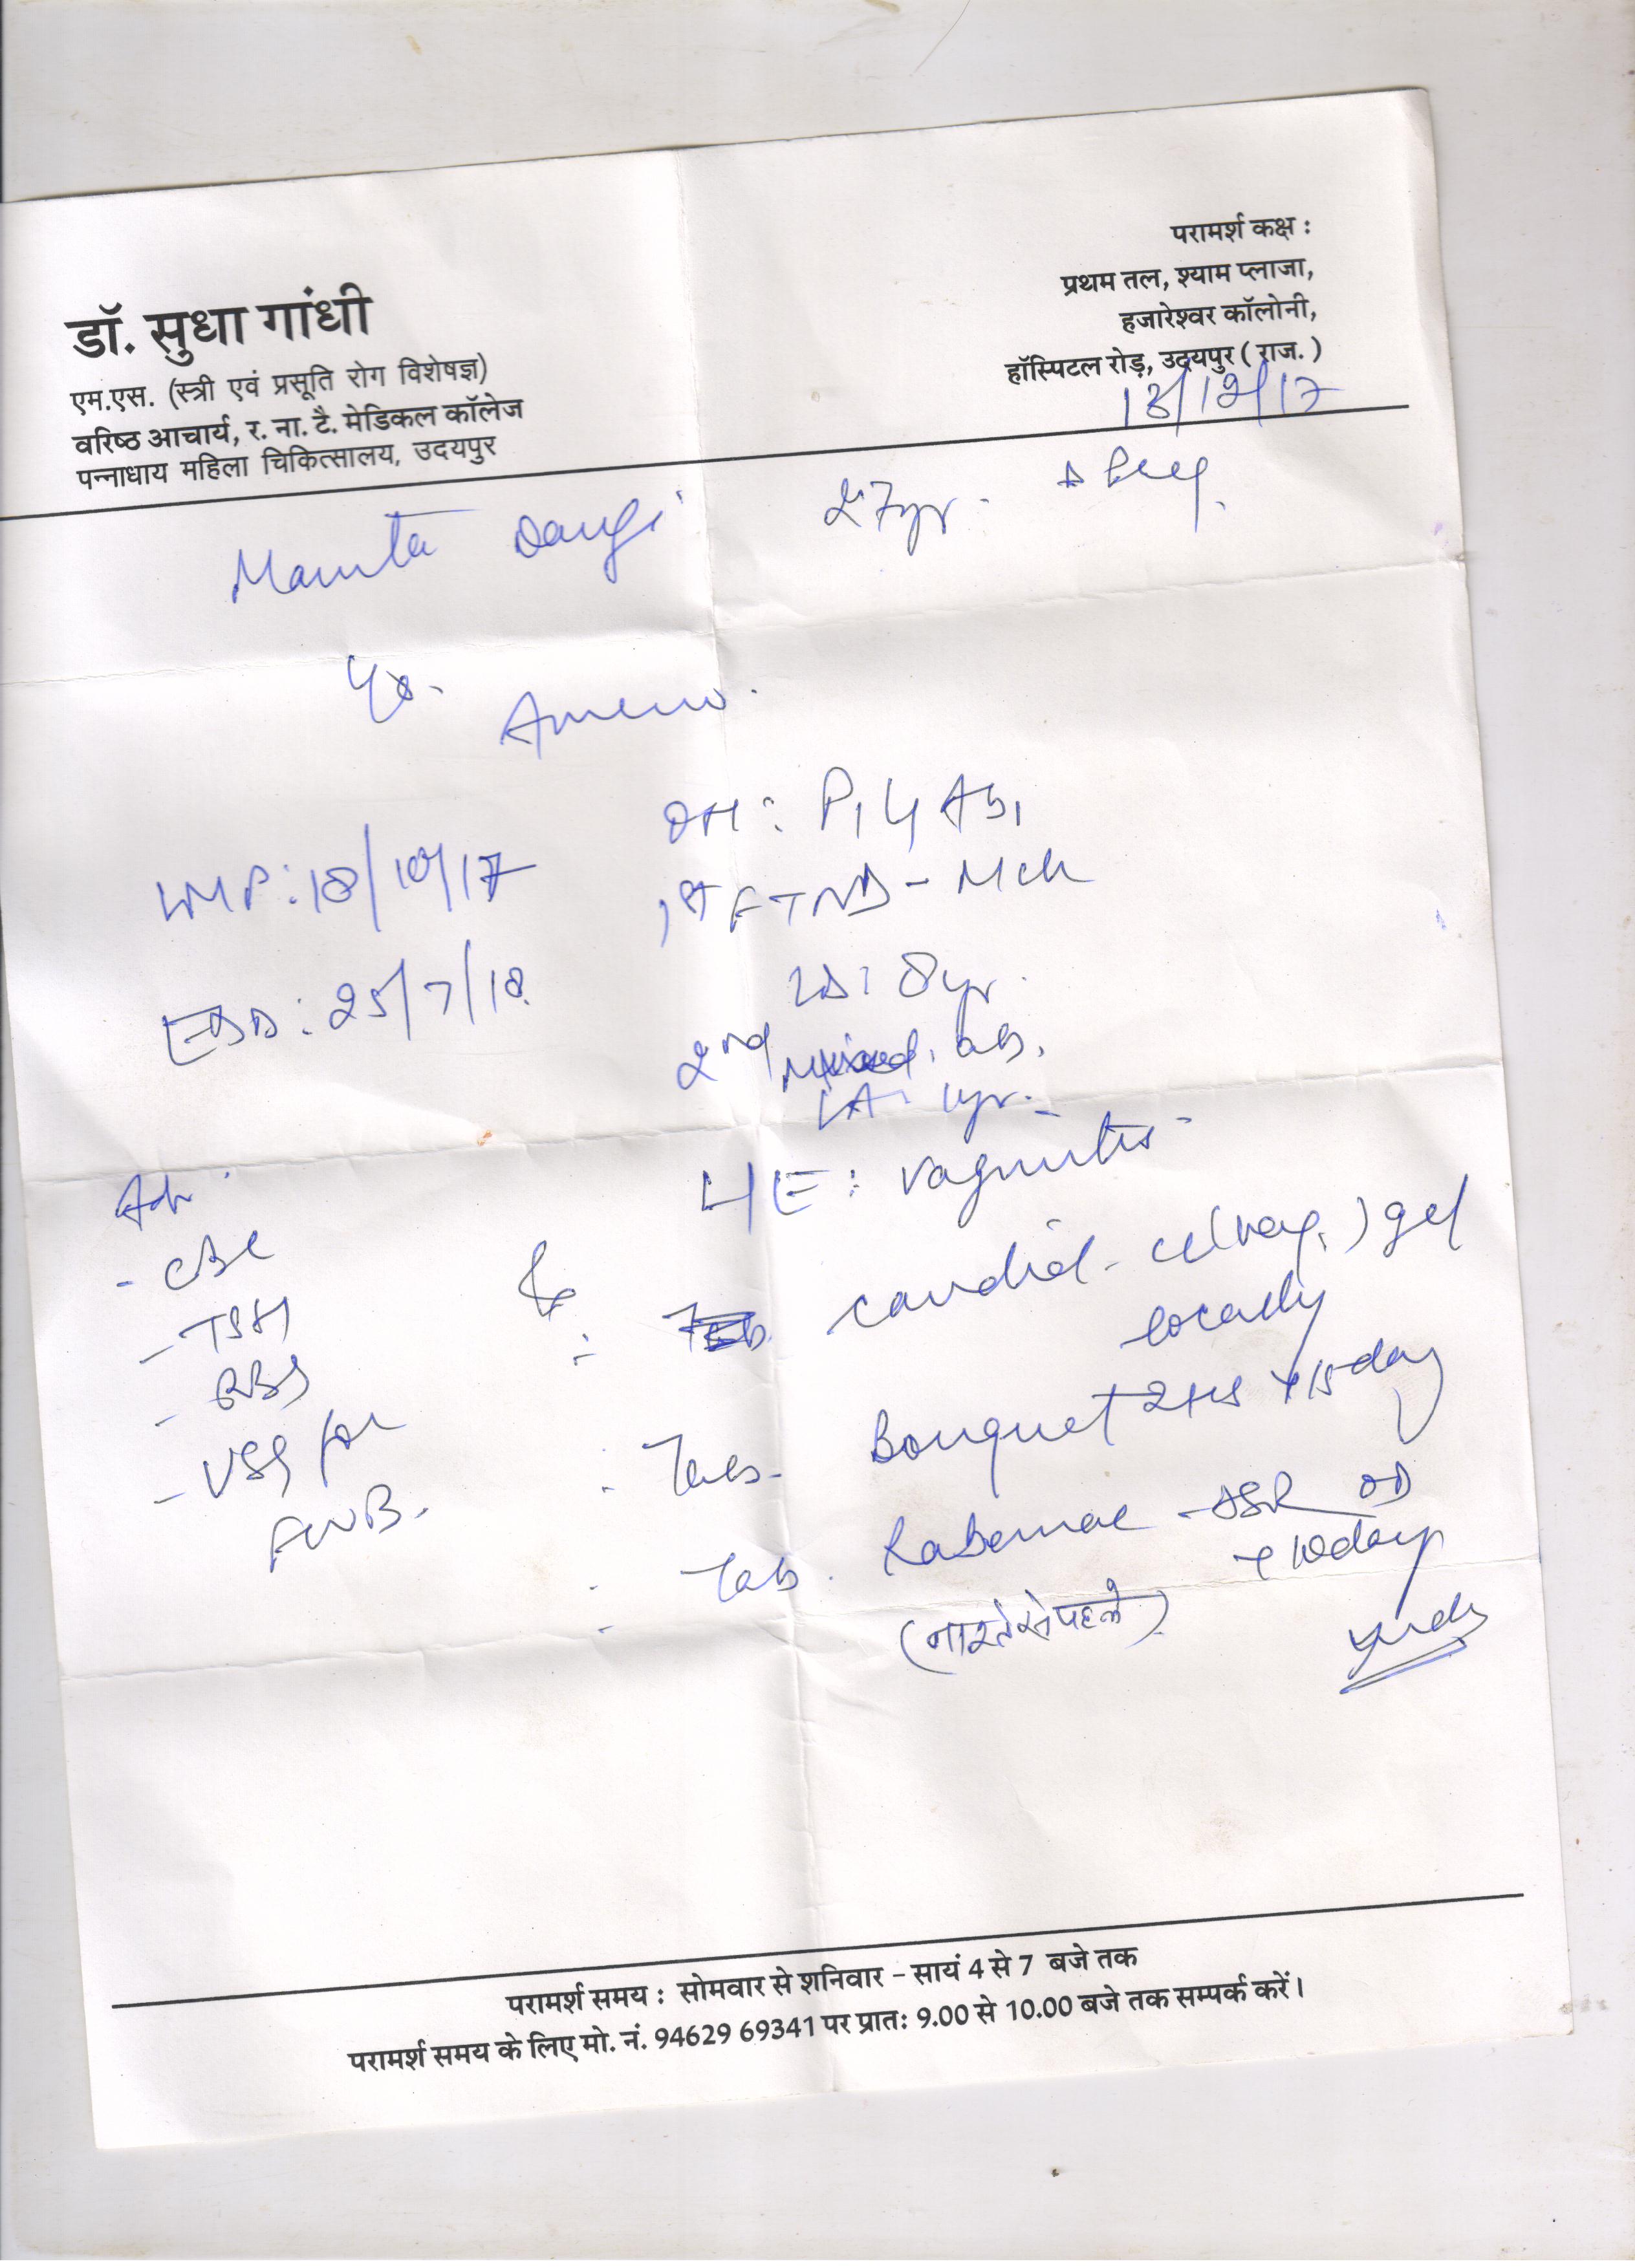 परामर्श कक्ष :
प्रथम तल, श्याम प्लाजा,
हजारेश्वर कॉलोनी,
हॉस्पिटल रोड़, उदयपुर ( राज. )
डॉ. सुधा गांधी
एम.एस. (स्त्री एवं प्रसूति रोग विशेषज्ञ)
वरिष्ठ आचार्य, र. ना. टै. मेडिकल कॉलेज
पन्नाधाय महिला चिकित्सालय, उदयपुर
13/12/17
Mamta Dangi 27yr.
Ameno.
OH: P1 L1 Ab1
LMP: 18/10/17
1st FTND - Mch
LD: 8yr.
EDD: 25/7/18
2nd ab.
LA: 1yr.
L/E: vaginitis
Adv.
- CBC
- TSH
- RBS
- USG for
FWB.
Rx
: Candid-cl (vag.) gel
locally
: Tab. Bouquet 2 HS x 15 day
: Tab. Rabemac-DSR OD
x 10 days
(नाश्ते से पहले)
परामर्श समय : सोमवार से शनिवार – सायं 4 से 7 बजे तक
परामर्श समय के लिए मो. नं. 94629 69341 पर प्रातः 9.00 से 10.00 बजे तक सम्पर्क करें।